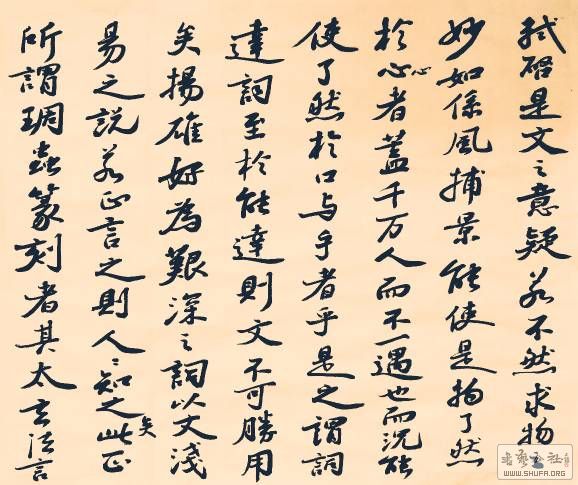 軾啓是文之意疑若不然求物之
妙如係風捕景能使是物了然
於心心者蓋千万人而不一遇也而況能
使了然於口与手者乎是之謂詞
達詞至於能達則文不可勝用
矣揚雄好為艱深之詞以文淺
易之說若正言之則人々知之矣此正
所謂琱蟲篆刻者其太玄法言
WWW.SHUFA.ORG